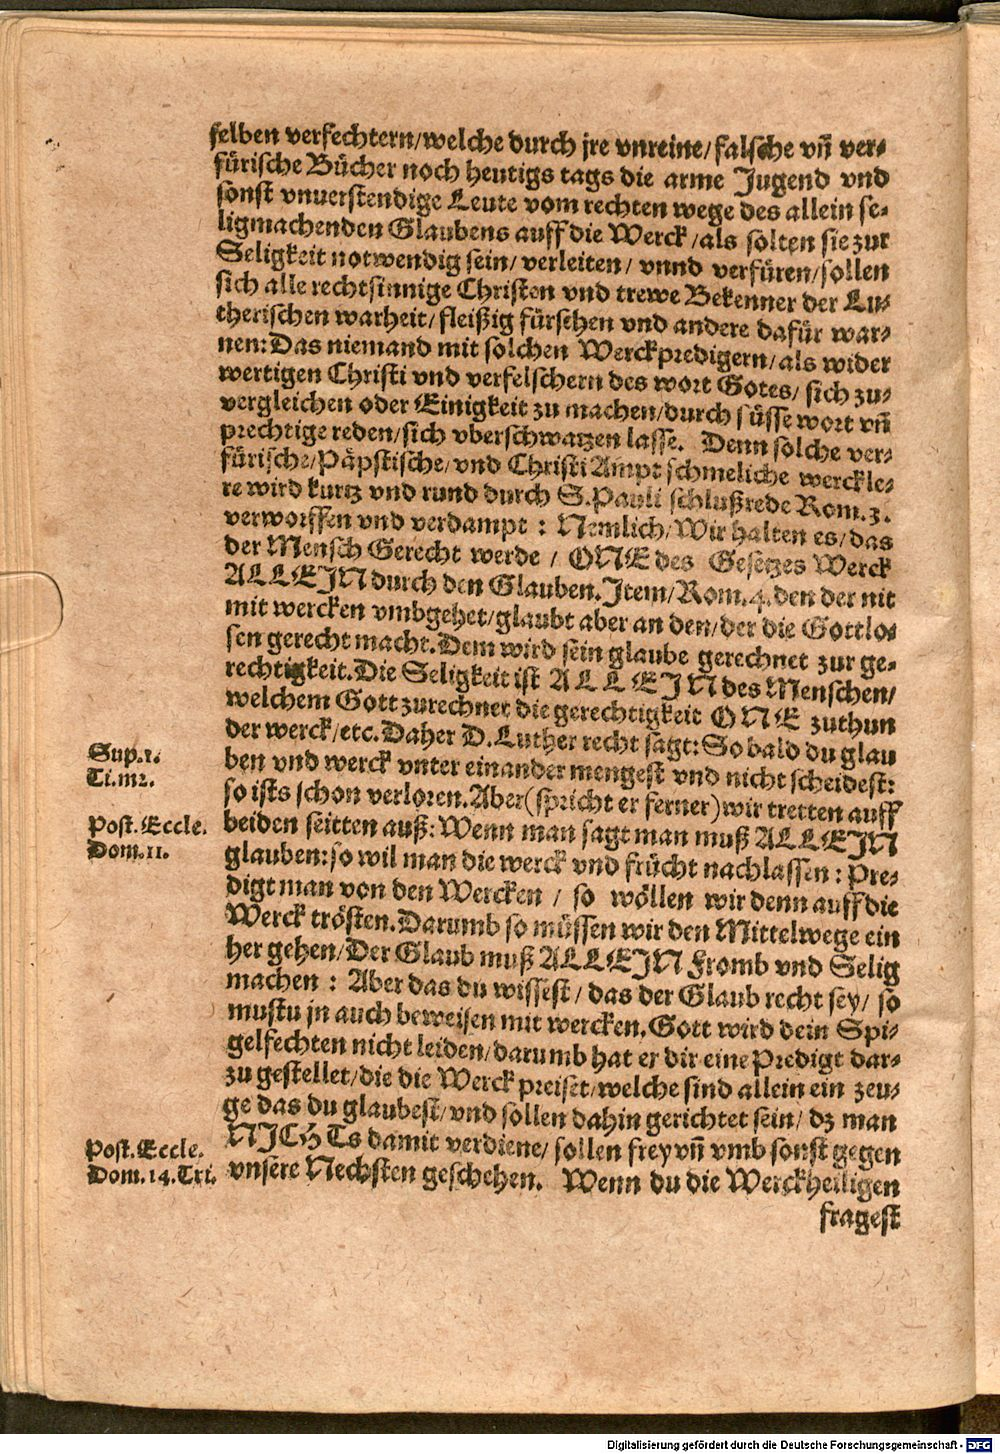 selben verfechtern/welche durch jre vnreine/falsche vñ ver-
fürische Bücher noch heutigs tags die arme Jugend vnd
sonst vnuerstendige Leute vom rechten wege des allein se-
ligmachenden Glaubens auff die Werck/als solten sie zur
Seligkeit notwendig sein/verleiten/vnnd verfüren/sollen
sich alle rechtsinnige Christen vnd trewe Bekenner der Lu-
therischen warheit/fleißig fürsehen vnd andere dafür war-
nen: Das niemand mit solchen Werckpredigern/als wider
wertigen Christi vnd verfelschern des wort Gotes/sich zu-
vergleichen oder Einigkeit zu machen/durch süsse wort vñ
prechtige reden/sich vberschwatzen lasse. Denn solche ver-
fürische/Päpstische/vnd Christi Ampt schmeliche werckle-
re wird kurtz vnd rund durch S. Pauli schlußrede Rom. 3.
verworffen vnd verdampt: Nemlich/Wir halten es/das
der Mensch Gerecht werde/ONE des Gesetzes Werck
ALLEIN durch den Glauben. Item/Rom. 4. den der nit
mit wercken vmbgehet/glaubt aber an den/der die Gottlo-
sen gerecht macht. Dem wird sein glaube gerechnet zur ge-
rechtigkeit. Die Seligkeit ist ALLEIN des Menschen/
welchem Gott zurechnet die gerechtigkeit ONE zuthun
der werck/etc. Daher D. Luther recht sagt: So bald du glau
Sup. 1.
Ti. m2.
ben vnd werck vnter einander mengest vnd nicht scheidest:
so ists schon verloren. Aber (spricht er ferner) wir tretten auff
Post. Eccle.
Dom. 11.
beiden seitten auß: Wenn man sagt man muß ALLEIN
glauben: so wil man die werck vnd frücht nachlassen: Pre-
digt man von den Wercken/so wöllen wir denn auff die
Werck trösten. Darumb so müssen wir den Mittelwege ein
her gehen/Der Glaub muß ALLEIN Fromb vnd Selig
machen: Aber das du wissest/das der Glaub recht sey/so
mustu jn auch beweisen mit wercken. Gott wird dein Spi-
gelfechten nicht leiden/darumb hat er dir eine Predigt dar-
zu gestellet/die die Werck preiset/welche sind allein ein zeu-
ge das du glaubest/vnd sollen dahin gerichtet sein/dz man
NICHTs damit verdiene/sollen frey vñ vmb sonst gegen
Post. Eccle.
Dom. 14. Tri.
vnsere Nechsten geschehen. Wenn du die Werckheiligen
fragest
Digitalisierung gefördert durch die Deutsche Forschungsgemeinschaft - DFG